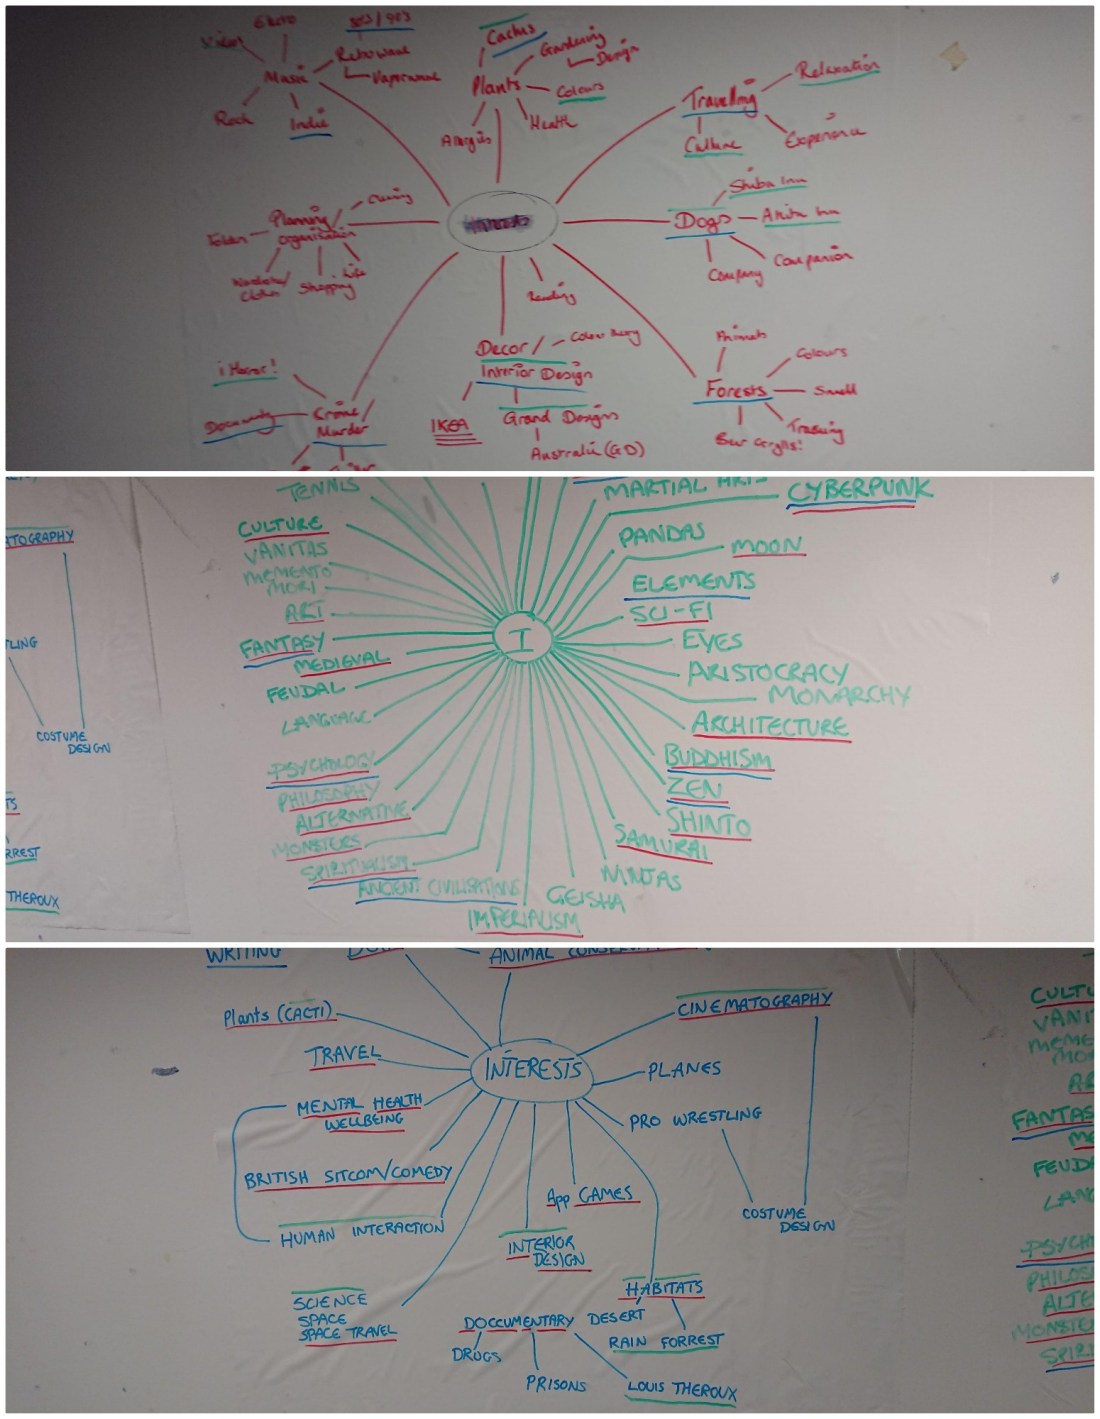 Electro
80s/90s
Music
Retrowave
Vaporwave
Rock
Indie
Cactus
Gardening
Design
Plants
Colours
Health
Relaxation
Travelling
Culture
Experience
Planning
Organisation
Shopping
Life
Reading
Shiba Inu
Dogs
Akita Inu
Company
Companion
Decor/
Interior Design
IKEA
Grand Designs
Australia (GD)
i Horror!
Crime
Murder
Animals
Colours
Forests
Smell
TENNIS
CYBERPUNK
CULTURE
PANDAS
MOON
VANITAS
MEMENTO
MORI
ELEMENTS
ART
SCI-FI
I
FANTASY
EYES
MEDIEVAL
ARISTOCRACY
FEUDAL
MONARCHY
LANGUAGE
ARCHITECTURE
PSYCHOLOGY
BUDDHISM
PHILOSOPHY
ZEN
ALTERNATIVE
SHINTO
MONSTERS
SAMURAI
SPIRITUALISM
NINJAS
ANCIENT CIVILISATIONS
GEISHA
IMPERIALISM
ATOGRAPHY
TLING
COSTUME
DESIGN
TS
RREST
THEROUX
WRITING
Plants (CACTI)
CINEMATOGRAPHY
TRAVEL
INTERESTS
PLANES
MENTAL HEALTH
WELLBEING
PRO WRESTLING
BRITISH SITCOM/COMEDY
App GAMES
HUMAN INTERACTION
COSTUME
DESIGN
INTERIOR
DESIGN
SCIENCE
SPACE
SPACE TRAVEL
HABITATS
DESERT
RAIN FORREST
DOCCUMENTARY
DRUGS
PRISONS
LOUIS THEROUX
CULTU
VANIT
MEME
MO
AR
FANTAS
ME
FEUD
LANG
PSYCH
PHILOS
ALTE
MONSTE
SPIRI